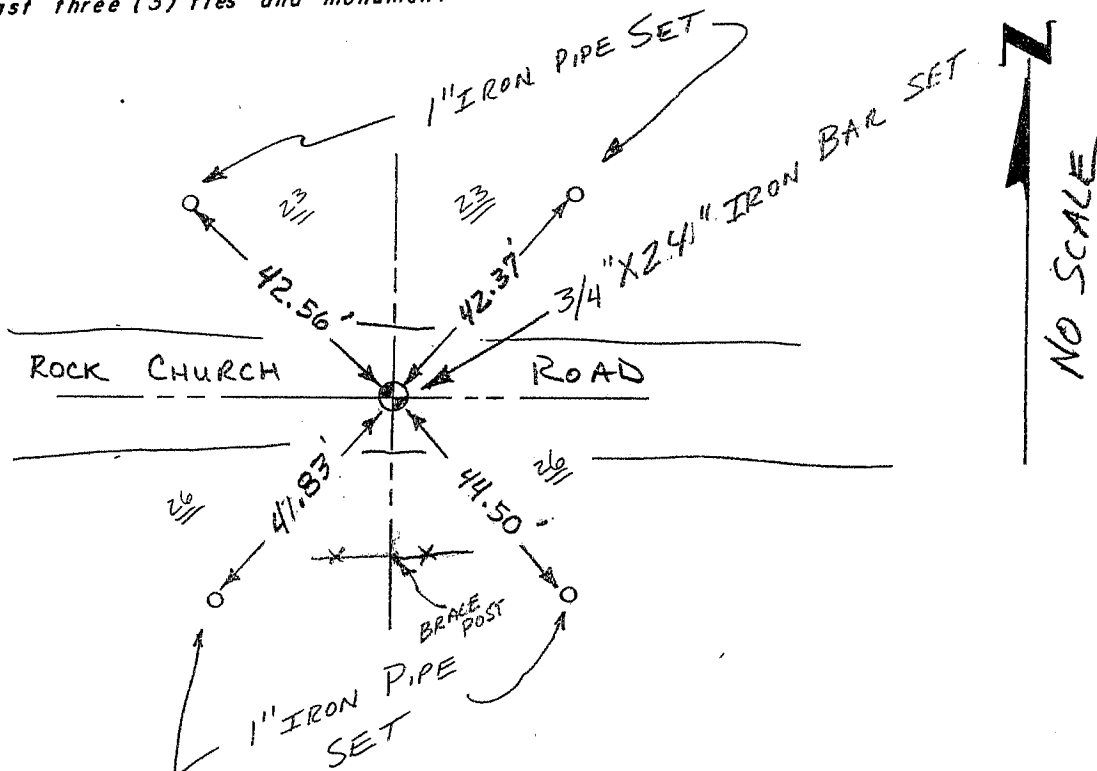 ast three (3) ties and monument
1" IRON PIPE SET
3/4" X 24" IRON BAR SET
N
NO SCALE
23
23
42.56'
42.37'
ROCK CHURCH ROAD
26
26
41.83'
44.50'
BRACE
POST
1" IRON PIPE
SET